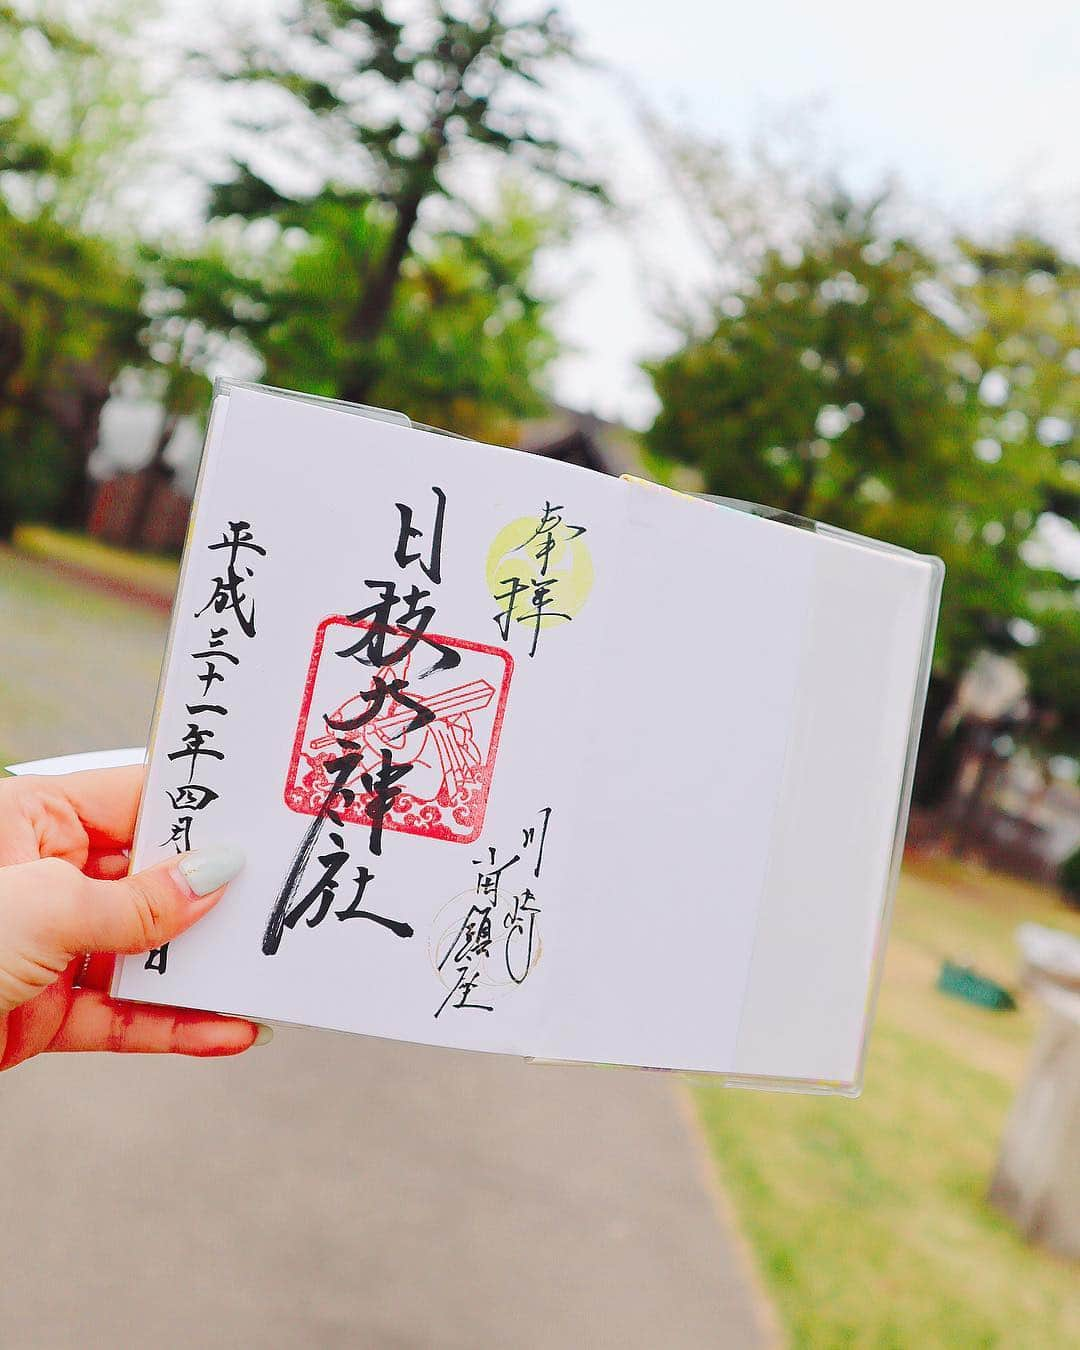 奉拝
川崎
小田鎮座
日枝大神社
平成三十一年四月
日